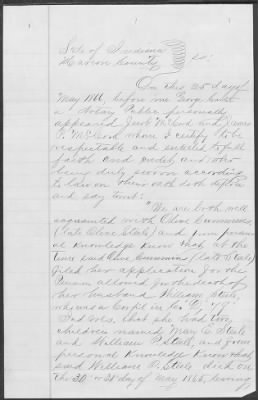 State of Indiana
County ss:
On this 25 day of
May 186 before me George
a Notary Public personally
appeared Jacob McCord and James
P. McCord whom I certify to be
respectable and entitled to full
faith and credit, and who
being duly sworn according
to law on their oath both depose
and say that
"We are both well
acquainted with Olive Cummins
(late Olive Steele) and from person
al Knowledge Know that at the
time said Olive Cummins (late Steele)
filed her application for the
Pension allowed for the death of
her husband William Steele,
who was a Corpl in Co.
Ind Vols, that she had two
children named Mary E. Steele
and William P. Steele, and from
personal Knowledge Know that
said William P. Steele died on
the 20 or 28 day of May 1865, leaving